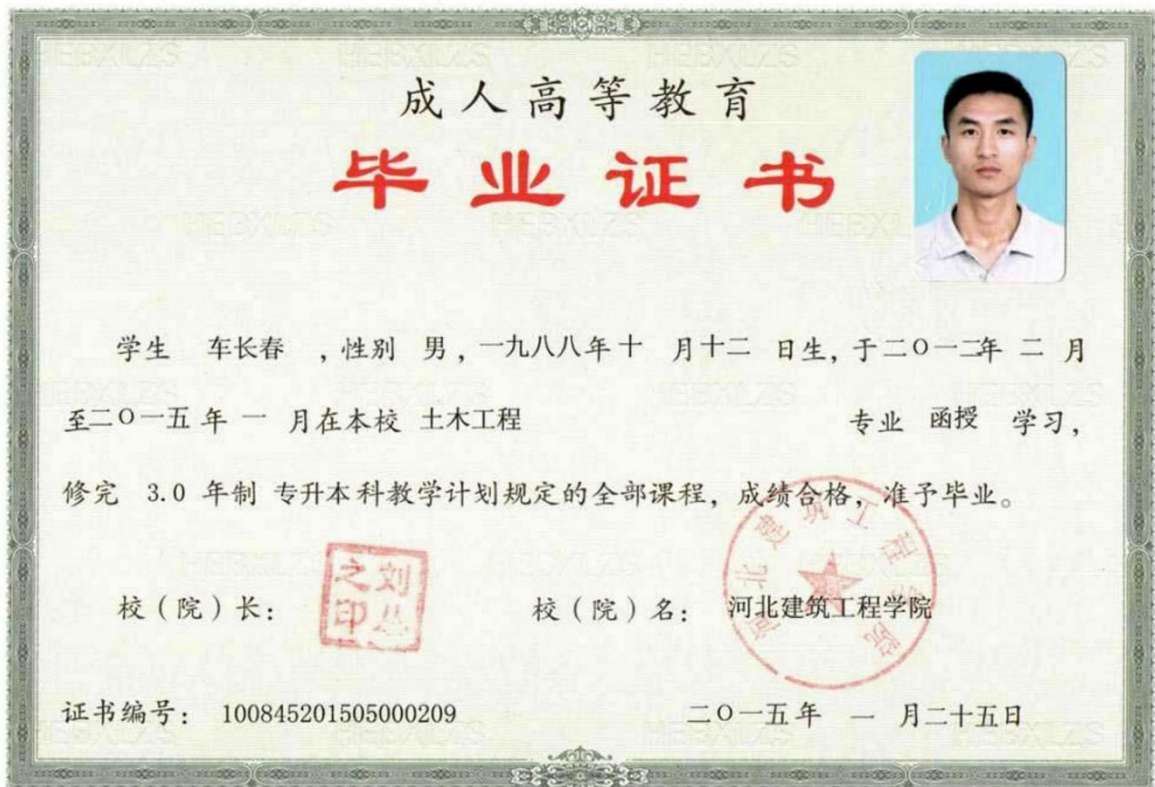 成人高等教育
毕业证书
学生 车长春 ，性别 男，一九八八年十 月十二 日生，于二〇一二年 二 月
至二〇一五年 一 月在本校 土木工程 专业 函授 学习，
修完 3.0 年制 专升本科教学计划规定的全部课程，成绩合格，准予毕业。
校（院）长： 校（院）名： 河北建筑工程学院
河北建筑工程学院
证书编号： 100845201505000209 二〇一五年 一 月二十五日
HEBXLZS